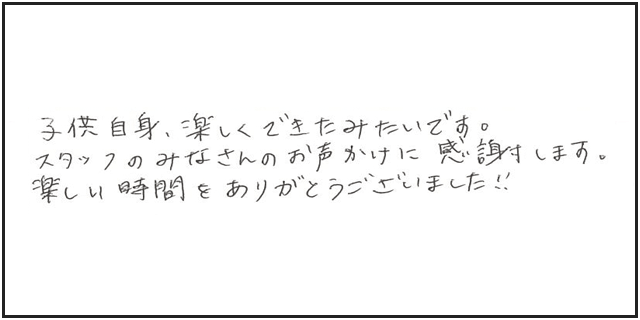 子供自身、楽しくできたみたいです。
スタッフのみなさんのお声かけに感謝します。
楽しい時間をありがとうございました!!